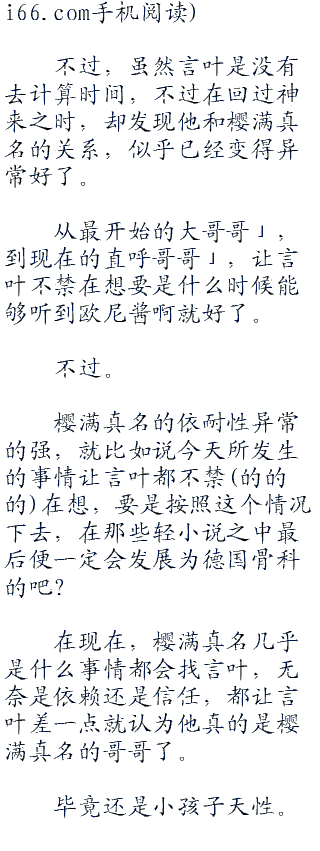 i66.com手机阅读)
不过，虽然言叶是没有
去计算时间，不过在回过神
来之时，却发现他和樱满真
名的关系，似乎已经变得异
常好了。
从最开始的大哥哥」，
到现在的直呼哥哥」，让言
叶不禁在想要是什么时候能
够听到欧尼酱啊就好了。
不过。
樱满真名的依耐性异常
的强，就比如说今天所发生
的事情让言叶都不禁(的的
的)在想，要是按照这个情况
下去，在那些轻小说之中最
后便一定会发展为德国骨科
的吧?
在现在，樱满真名几乎
是什么事情都会找言叶，无
奈是依赖还是信任，都让言
叶差一点就认为他真的是樱
满真名的哥哥了。
毕竟还是小孩子天性。